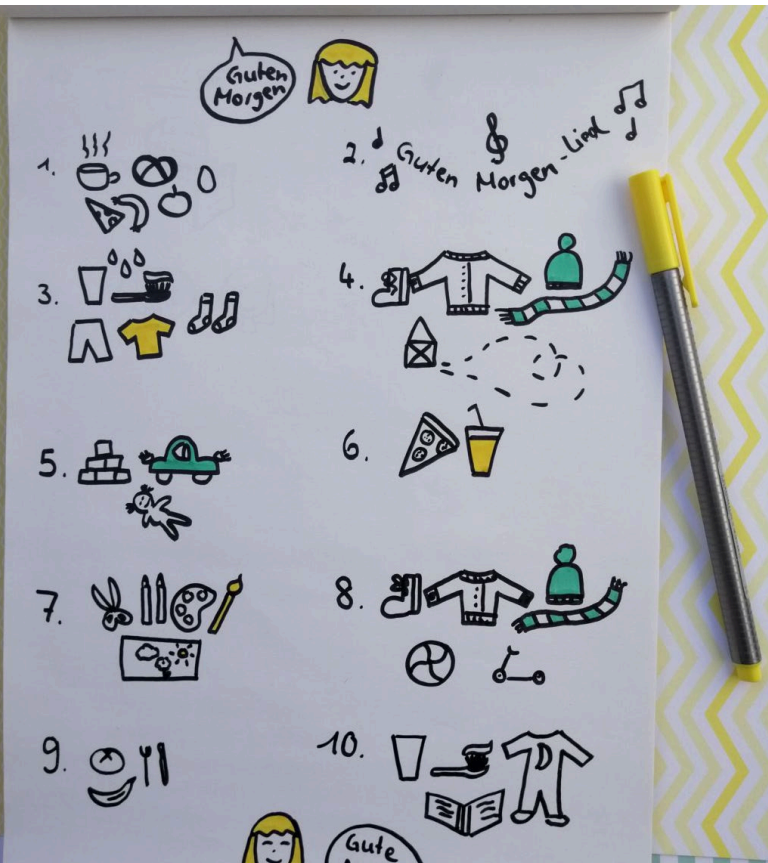 Guten
Morgen
1.
2. Guten Morgen-Lied
3.
4.
5.
6.
7.
8.
9.
10.
Gute